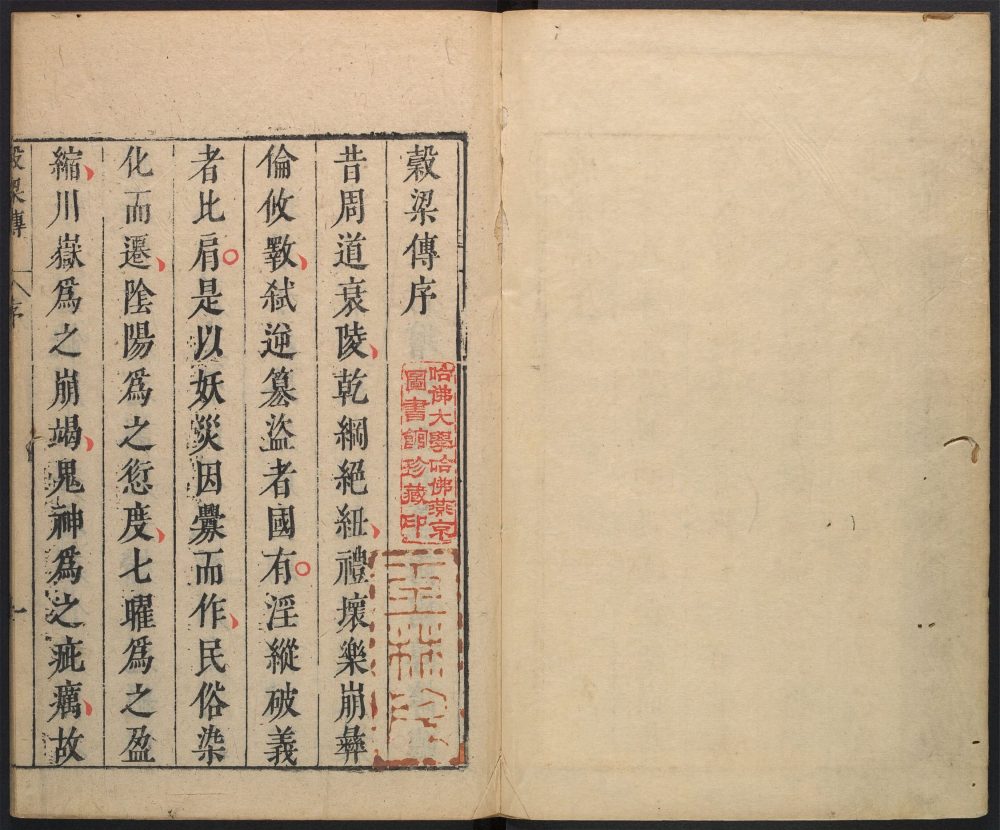 穀梁傳序
哈佛大學哈佛燕京
圖書館珍藏印
昔周道衰陵乾綱絕紐禮壞樂崩彝
倫攸斁弑逆篡盜者國有淫縱破義
者比肩是以妖災因釁而作民俗染
化而遷陰陽爲之愆度七曜爲之盈
縮川嶽爲之崩竭鬼神爲之疵癘故
穀梁傳
序
一